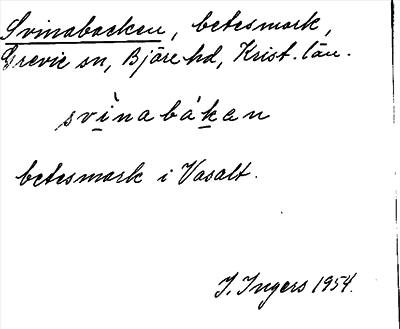 Svinabacken, betesmark,
Grevie sn, Bjäre hd, Krist. län.
svìnabákan
betesmark i Vasalt.
I. Ingers 1954.